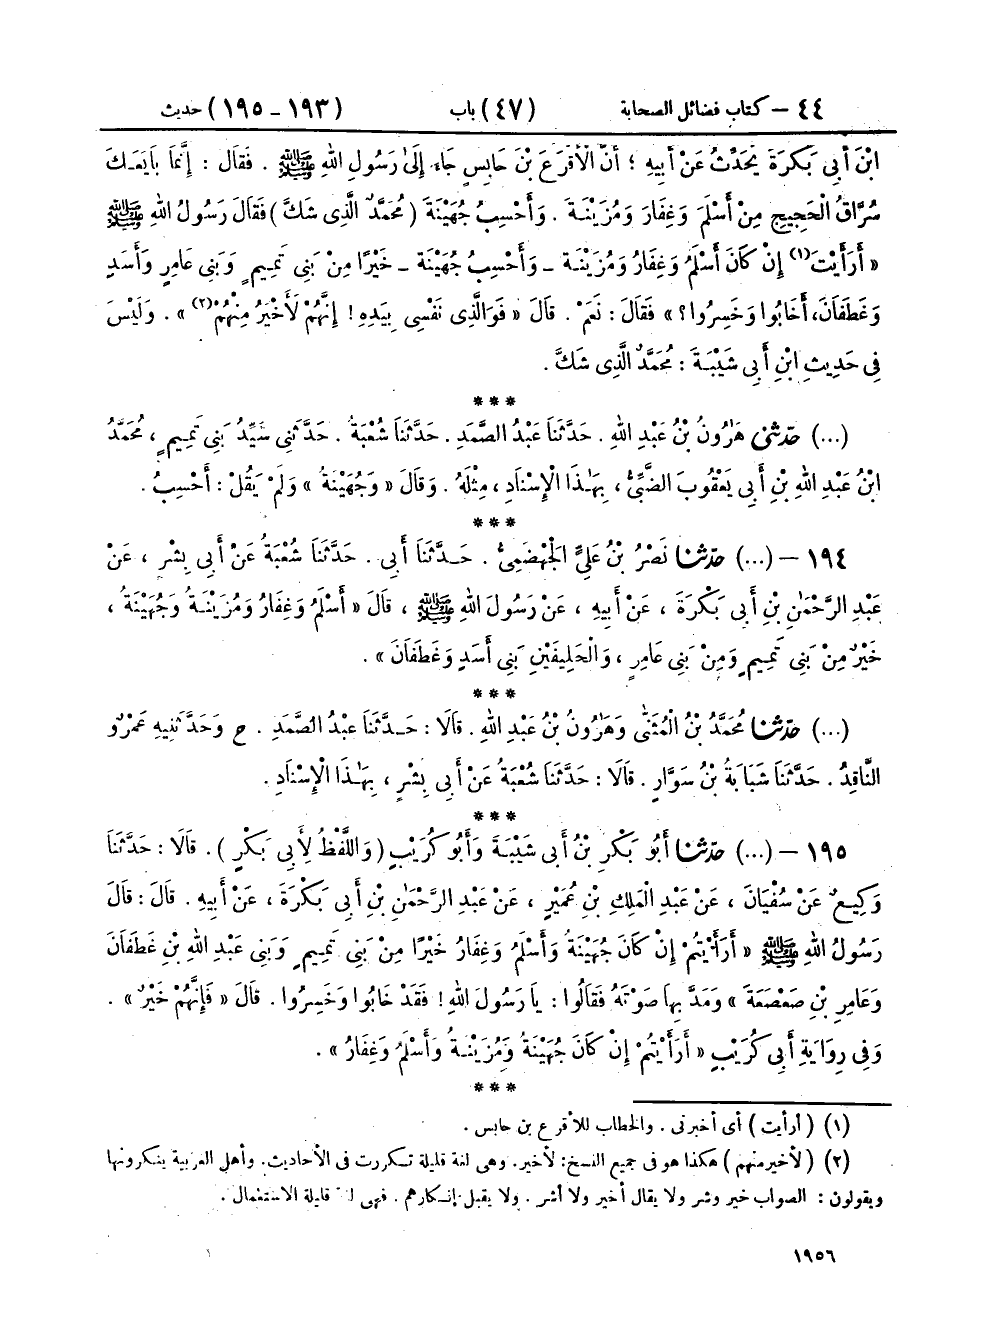 ٤٤ – كتاب فضائل الصحابة (٤٧) باب (١٩٣ – ١٩٥) حديث
ابْنَ أَبِي بَكْرَةَ يُحَدِّثُ عَنْ أَبِيهِ ؛ أَنَّ الْأَقْرَعَ بْنَ حَابِسٍ جَاءَ إِلَىٰ رَسُولِ اللهِ ﷺ . فَقَالَ : إِنَّمَا بَايَعَكَ
سُرَّاقُ الْحَجِيجِ مِنْ أَسْلَمَ وَغِفَارَ وَمُزَيْنَةَ . وَأَحْسِبُ جُهَيْنَةَ ( مُحَمَّدٌ الَّذِي شَكَّ ) فَقَالَ رَسُولُ اللهِ ﷺ
« أَرَأَيْتَ(١) إِنْ كَانَ أَسْلَمُ وَغِفَارُ وَمُزَيْنَةُ – وَأَحْسِبُ جُهَيْنَةَ – خَيْرًا مِنْ بَنِي تَمِيمٍ وَبَنِي عَامِرٍ وَأَسَدٍ
وَغَطَفَانَ، أَخَابُوا وَخَسِرُوا؟ » فَقَالَ : نَعَمْ . قَالَ « فَوَالَّذِي نَفْسِي بِيَدِهِ ! إِنَّهُمْ لَأَخْيَرُ مِنْهُمْ(٢) » . وَلَيْسَ
فِي حَدِيثِ ابْنِ أَبِي شَيْبَةَ : مُحَمَّدٌ الَّذِي شَكَّ .
***
(...) حَدَّثَنِي هَٰرُونُ بْنُ عَبْدِ اللهِ . حَدَّثَنَا عَبْدُ الصَّمَدِ . حَدَّثَنَا شُعْبَةُ . حَدَّثَنِي سَيِّدُ بَنِي تَمِيمٍ ، مُحَمَّدُ
ابْنُ عَبْدِ اللهِ بْنِ أَبِي يَعْقُوبَ الضَّبِّيُّ ، بِهَٰذَا الْإِسْنَادِ ، مِثْلَهُ . وَقَالَ « وَجُهَيْنَةُ » وَلَمْ يَقُلْ : أَحْسِبُ .
***
١٩٤ – (...) حَدَّثَنَا نَصْرُ بْنُ عَلِيٍّ الْجَهْضَمِيُّ . حَدَّثَنَا أَبِي . حَدَّثَنَا شُعْبَةُ عَنْ أَبِي بِشْرٍ ، عَنْ
عَبْدِ الرَّحْمَٰنِ بْنِ أَبِي بَكْرَةَ ، عَنْ أَبِيهِ ، عَنْ رَسُولِ اللهِ ﷺ ، قَالَ « أَسْلَمُ وَغِفَارُ وَمُزَيْنَةُ وَجُهَيْنَةُ ،
خَيْرٌ مِنْ بَنِي تَمِيمٍ وَمِنْ بَنِي عَامِرٍ ، وَالْحَلِيفَيْنِ بَنِي أَسَدٍ وَغَطَفَانَ » .
***
(...) حَدَّثَنَا مُحَمَّدُ بْنُ الْمُثَنَّىٰ وَهَٰرُونُ بْنُ عَبْدِ اللهِ . قَالَا : حَدَّثَنَا عَبْدُ الصَّمَدِ . ح وَحَدَّثَنِيهِ عَمْرٌو
النَّاقِدُ . حَدَّثَنَا شَبَابَةُ بْنُ سَوَّارٍ . قَالَا : حَدَّثَنَا شُعْبَةُ عَنْ أَبِي بِشْرٍ ، بِهَٰذَا الْإِسْنَادِ .
***
١٩٥ – (...) حَدَّثَنَا أَبُو بَكْرِ بْنُ أَبِي شَيْبَةَ وَأَبُو كُرَيْبٍ ( وَاللَّفْظُ لِأَبِي بَكْرٍ ) . قَالَا : حَدَّثَنَا
وَكِيعٌ عَنْ سُفْيَانَ ، عَنْ عَبْدِ الْمَلِكِ بْنِ عُمَيْرٍ ، عَنْ عَبْدِ الرَّحْمَٰنِ بْنِ أَبِي بَكْرَةَ ، عَنْ أَبِيهِ . قَالَ : قَالَ
رَسُولُ اللهِ ﷺ « أَرَأَيْتُمْ إِنْ كَانَ جُهَيْنَةُ وَأَسْلَمُ وَغِفَارُ خَيْرًا مِنْ بَنِي تَمِيمٍ وَبَنِي عَبْدِ اللهِ بْنِ غَطَفَانَ
وَعَامِرِ بْنِ صَعْصَعَةَ » وَمَدَّ بِهَا صَوْتَهُ فَقَالُوا : يَا رَسُولَ اللهِ ! فَقَدْ خَابُوا وَخَسِرُوا . قَالَ « فَإِنَّهُمْ خَيْرٌ » .
وَفِي رِوَايَةِ أَبِي كُرَيْبٍ « أَرَأَيْتُمْ إِنْ كَانَ جُهَيْنَةُ وَمُزَيْنَةُ وَأَسْلَمُ وَغِفَارُ » .
***
(١) ( أرأيت ) أى أخبرنى . والخطاب للأقرع بن حابس .
(٢) ( لأخير منهم ) هكذا هو فى جميع النسخ: لأخير. وهى لغة قليلة تكررت فى الأحاديث. وأهل العربية ينكرونها
ويقولون : الصواب خير وشر ولا يقال أخير ولا أشر . ولا يقبل إنكارهم . فهى لغة قليلة الاستعمال .
١٩٥٦